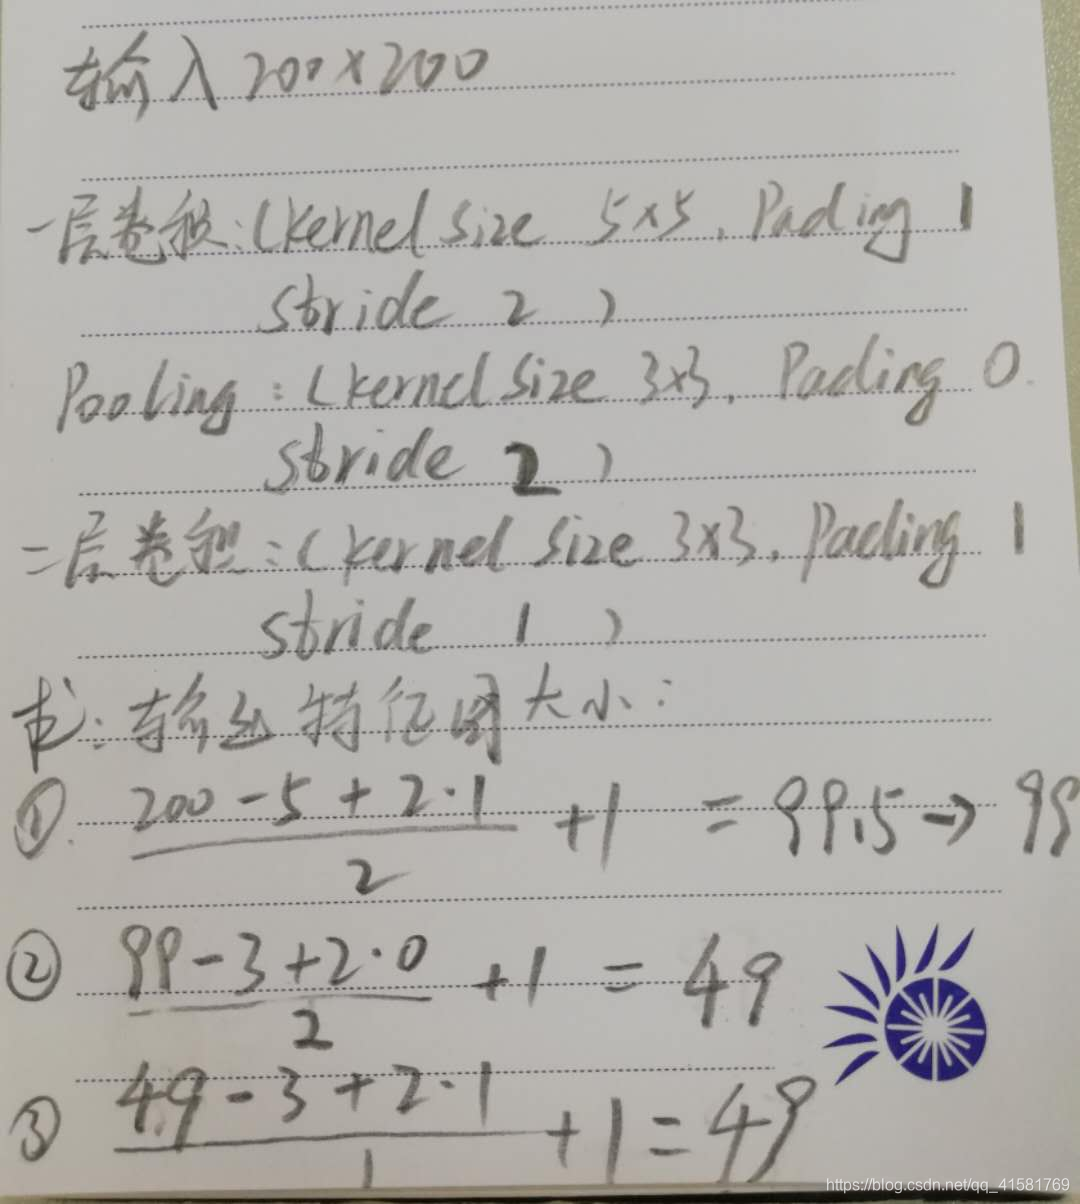 输入 200×200
一层卷积:(kernel size 5×5, Pading 1
stride 2 )
Pooling:(kernel size 3×3, Pading 0
stride 2 )
二层卷积:(kernel size 3×3, Pading 1
stride 1 )
求:输出特征图大小:
① (200-5+2·1)/2 +1 = 99.5→99
② (99-3+2·0)/2 +1 = 49
③ (49-3+2·1)/1 +1=49
https://blog.csdn.net/qq_41581769